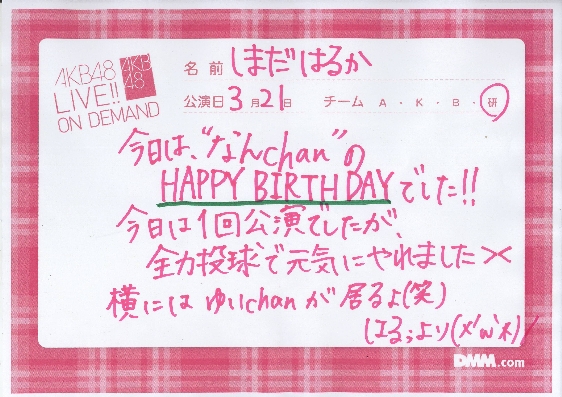 AKB48
LIVE!!
ON DEMAND
AKB
48
名前 しまだはるか
公演日 3月21日 チーム A・K・B・研
今日は、"なんchan"の
HAPPY BIRTHDAYでした!!
今日は1回公演でしたが、
全力投球で元気にやれました
横にはゆいchanが居るよ(笑)
はるぅより
DMM.com